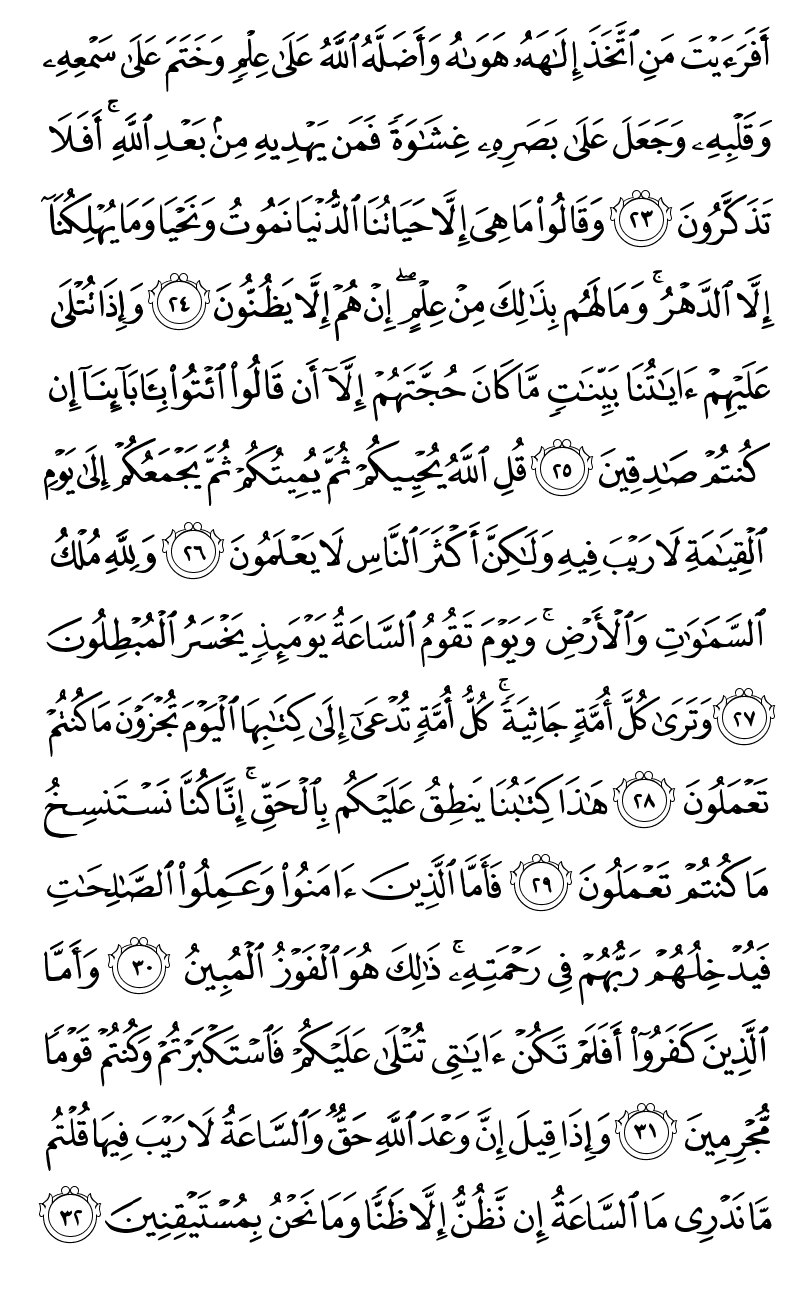 أَفَرَءَيْتَ مَنِ ٱتَّخَذَ إِلَـٰهَهُۥ هَوَىٰهُ وَأَضَلَّهُ ٱللَّهُ عَلَىٰ عِلْمٍ وَخَتَمَ عَلَىٰ سَمْعِهِۦ
وَقَلْبِهِۦ وَجَعَلَ عَلَىٰ بَصَرِهِۦ غِشَـٰوَةً فَمَن يَهْدِيهِ مِنۢ بَعْدِ ٱللَّهِ ۚ أَفَلَا
تَذَكَّرُونَ ٢٣ وَقَالُوا۟ مَا هِىَ إِلَّا حَيَاتُنَا ٱلدُّنْيَا نَمُوتُ وَنَحْيَا وَمَا يُهْلِكُنَآ
إِلَّا ٱلدَّهْرُ ۚ وَمَا لَهُم بِذَٰلِكَ مِنْ عِلْمٍ ۖ إِنْ هُمْ إِلَّا يَظُنُّونَ ٢٤ وَإِذَا تُتْلَىٰ
عَلَيْهِمْ ءَايَـٰتُنَا بَيِّنَـٰتٍ مَّا كَانَ حُجَّتَهُمْ إِلَّآ أَن قَالُوا۟ ٱئْتُوا۟ بِـَٔابَآئِنَآ إِن
كُنتُمْ صَـٰدِقِينَ ٢٥ قُلِ ٱللَّهُ يُحْيِيكُمْ ثُمَّ يُمِيتُكُمْ ثُمَّ يَجْمَعُكُمْ إِلَىٰ يَوْمِ
ٱلْقِيَـٰمَةِ لَا رَيْبَ فِيهِ وَلَـٰكِنَّ أَكْثَرَ ٱلنَّاسِ لَا يَعْلَمُونَ ٢٦ وَلِلَّهِ مُلْكُ
ٱلسَّمَـٰوَٰتِ وَٱلْأَرْضِ ۚ وَيَوْمَ تَقُومُ ٱلسَّاعَةُ يَوْمَئِذٍ يَخْسَرُ ٱلْمُبْطِلُونَ
٢٧ وَتَرَىٰ كُلَّ أُمَّةٍ جَاثِيَةً ۚ كُلُّ أُمَّةٍ تُدْعَىٰٓ إِلَىٰ كِتَـٰبِهَا ٱلْيَوْمَ تُجْزَوْنَ مَا كُنتُمْ
تَعْمَلُونَ ٢٨ هَـٰذَا كِتَـٰبُنَا يَنطِقُ عَلَيْكُم بِٱلْحَقِّ ۚ إِنَّا كُنَّا نَسْتَنسِخُ
مَا كُنتُمْ تَعْمَلُونَ ٢٩ فَأَمَّا ٱلَّذِينَ ءَامَنُوا۟ وَعَمِلُوا۟ ٱلصَّـٰلِحَـٰتِ
فَيُدْخِلُهُمْ رَبُّهُمْ فِى رَحْمَتِهِۦ ۚ ذَٰلِكَ هُوَ ٱلْفَوْزُ ٱلْمُبِينُ ٣٠ وَأَمَّا
ٱلَّذِينَ كَفَرُوٓا۟ أَفَلَمْ تَكُنْ ءَايَـٰتِى تُتْلَىٰ عَلَيْكُمْ فَٱسْتَكْبَرْتُمْ وَكُنتُمْ قَوْمًا
مُّجْرِمِينَ ٣١ وَإِذَا قِيلَ إِنَّ وَعْدَ ٱللَّهِ حَقٌّ وَٱلسَّاعَةُ لَا رَيْبَ فِيهَا قُلْتُم
مَّا نَدْرِى مَا ٱلسَّاعَةُ إِن نَّظُنُّ إِلَّا ظَنًّا وَمَا نَحْنُ بِمُسْتَيْقِنِينَ ٣٢